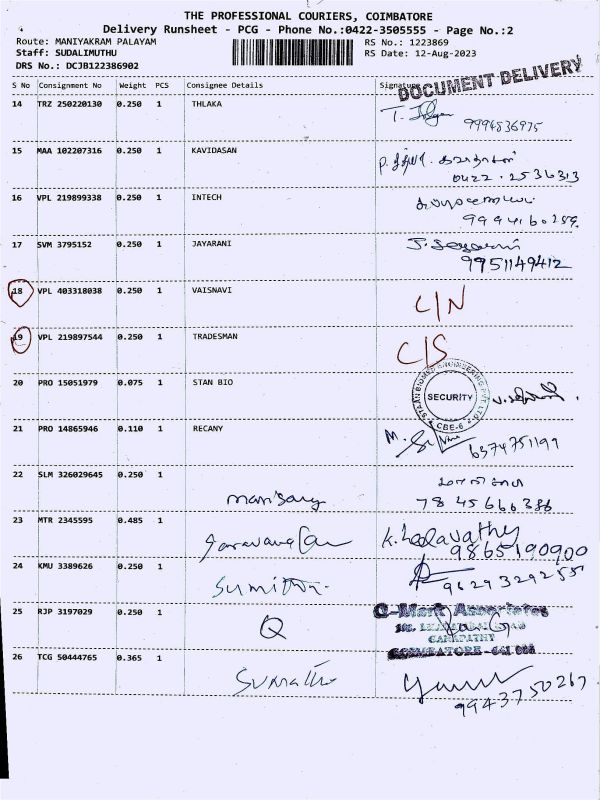 THE PROFESSIONAL COURIERS, COIMBATORE
Delivery Runsheet - PCG - Phone No.:0422-3505555 - Page No.:2
Route: MANIYAKRAM PALAYAM RS No.: 1223869
Staff: SUDALIMUTHU RS Date: 12-Aug-2023
DRS No.: DCJB122386902
DOCUMENT DELIVERY
S No Consignment No Weight PCS Consignee Details Signature
14 TRZ 250220130 0.250 1 THLAKA
9994836975
15 MAA 102207316 0.250 1 KAVIDASAN
0422 - 2536313
16 VPL 219899338 0.250 1 INTECH
9994160259
17 SVM 3795152 0.250 1 JAYARANI J. Jeyarani
9951149412
18 VPL 403318038 0.250 1 VAISNAVI C/N
19 VPL 219897544 0.250 1 TRADESMAN C/S
20 PRO 15051979 0.075 1 STAN BIO SECURITY
CBE-6
21 PRO 14865946 0.110 1 RECANY
6374751199
22 SLM 326029645 0.250 1
7845666388
23 MTR 2345595 0.485 1 K. Leelavathy
9865190900
24 KMU 3389626 0.250 1 Sumithra
9629329255
25 RJP 3197029 0.250 1 Q G-Mark Associates
GANAPATHY
COIMBATORE -641 006
26 TCG 50444765 0.365 1 Sumathi
9943750267